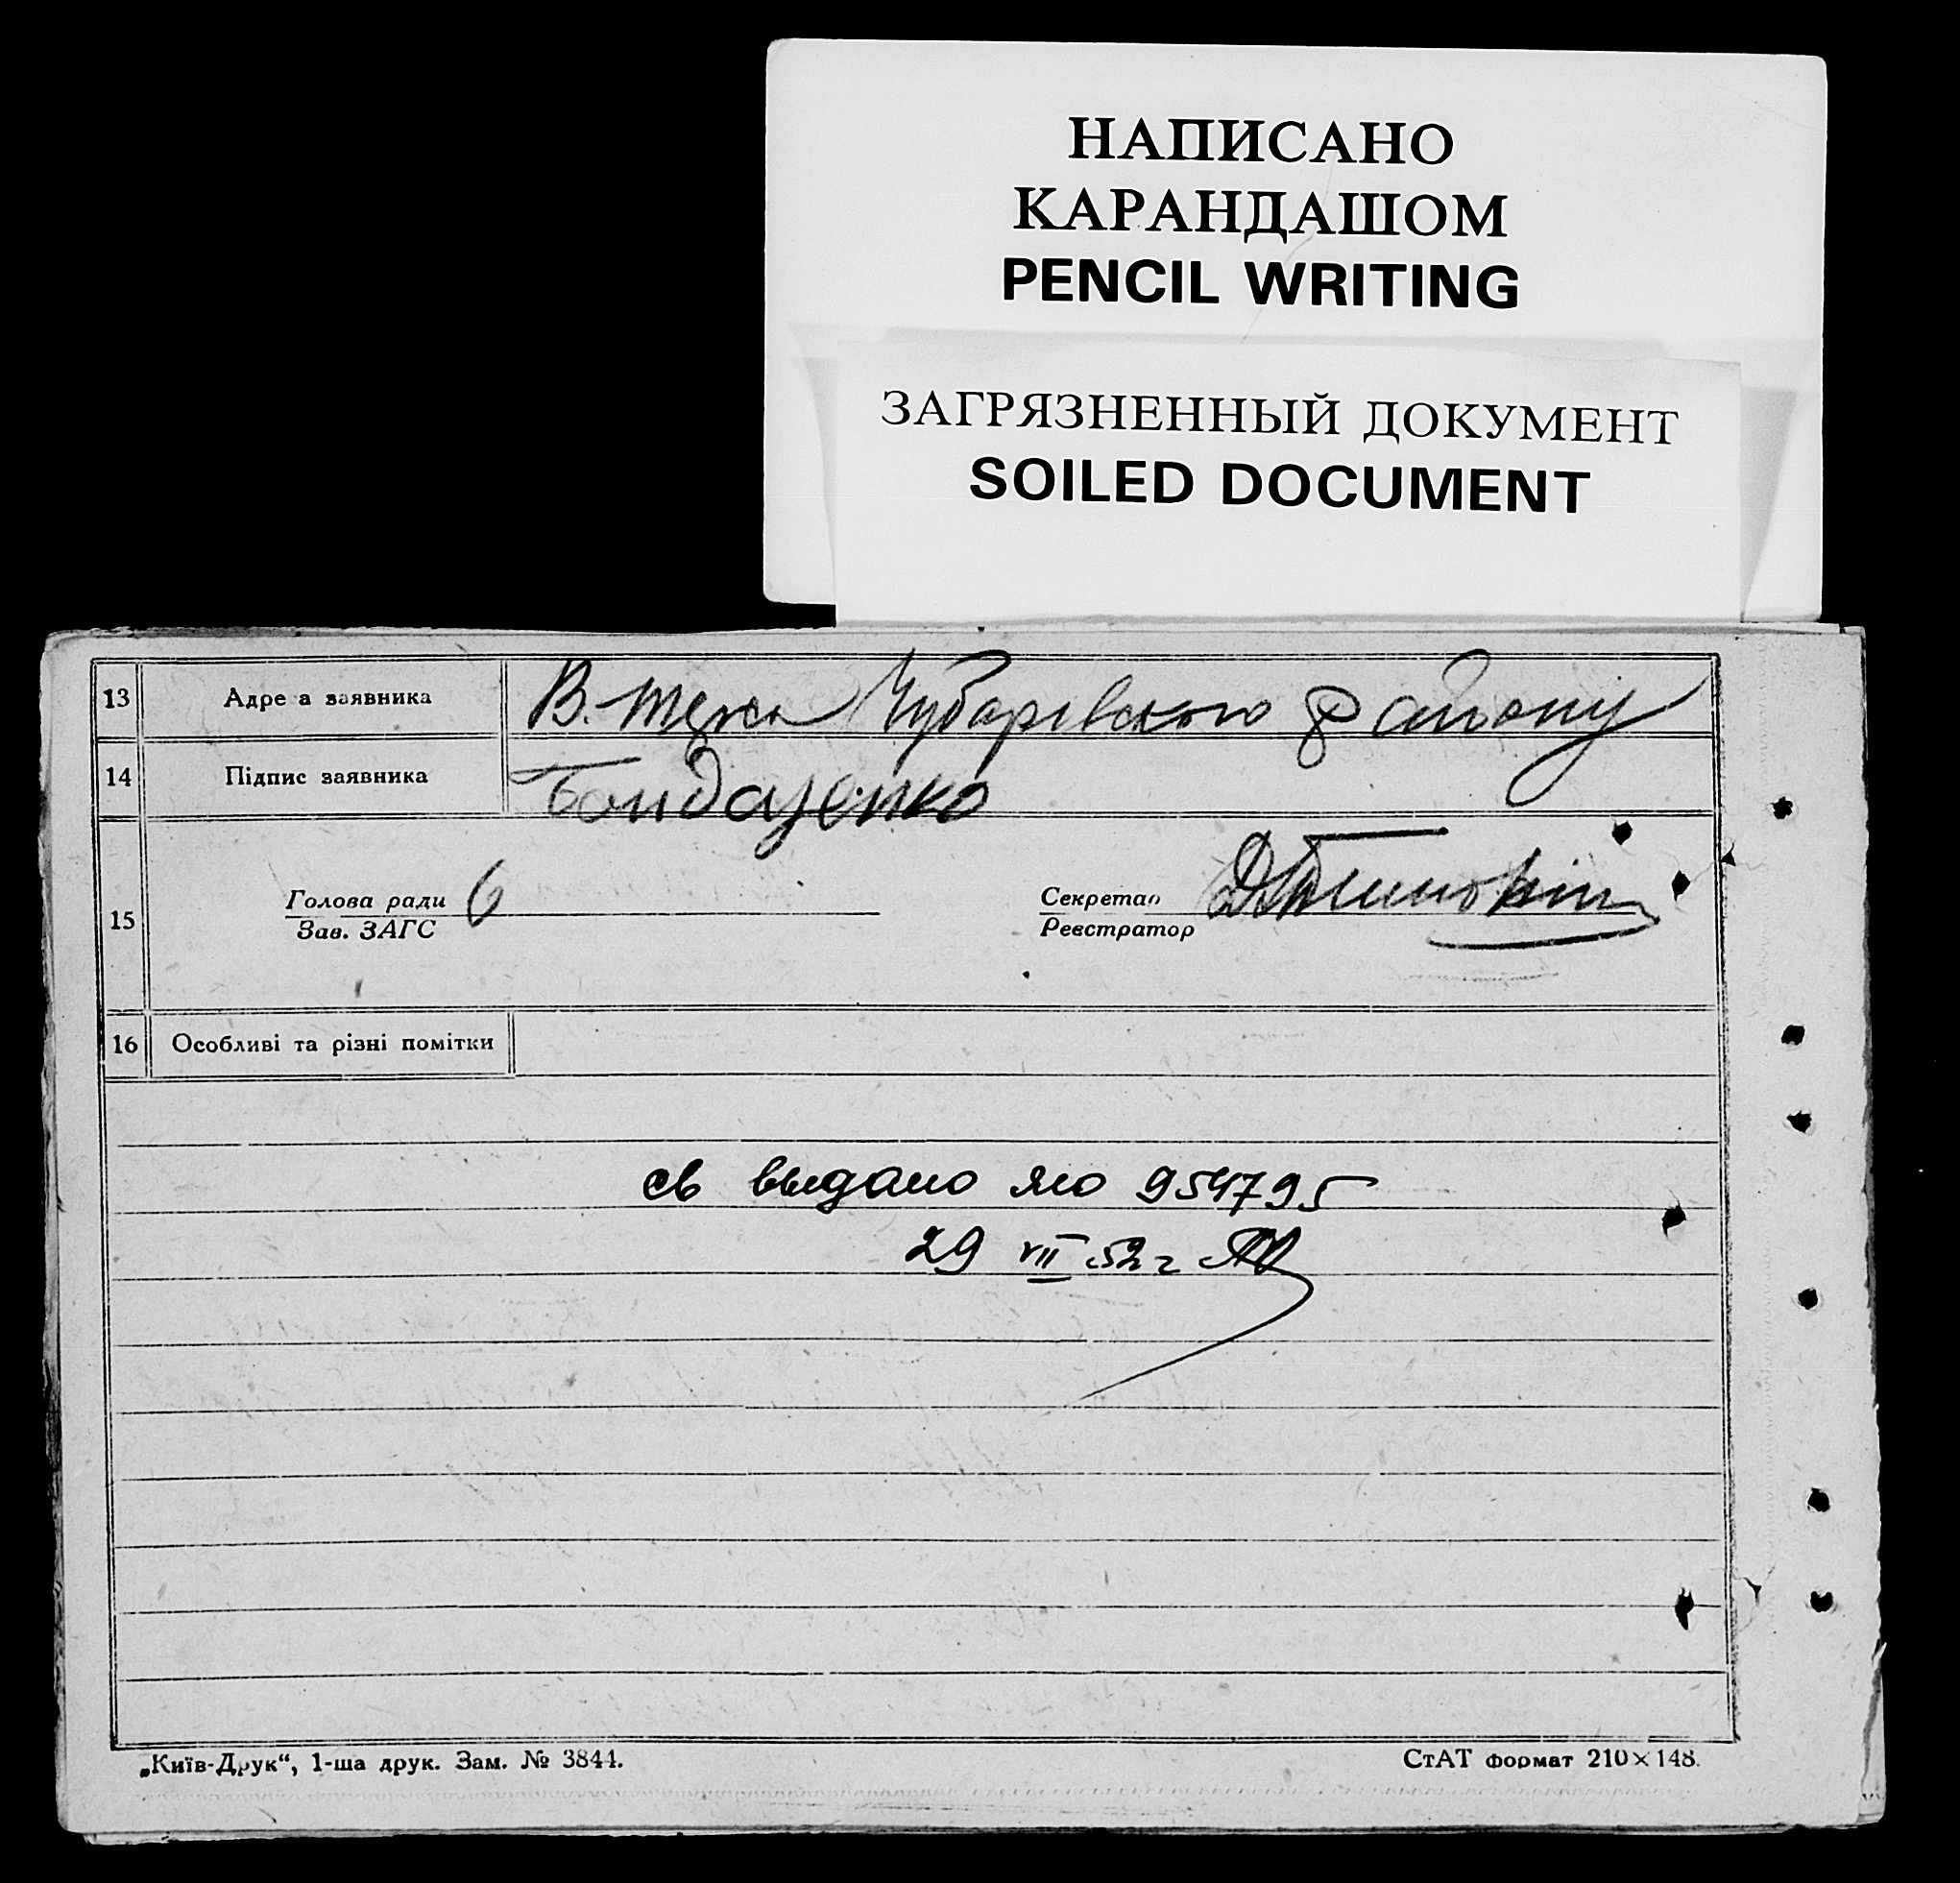 НАПИСАНО
КАРАНДАШОМ
PENCIL WRITING
ЗАГРЯЗНЕННЫЙ ДОКУМЕНТ
SOILED DOCUMENT
13 Адре а заявника В. Чубарівського району
14 Підпис заявника Бондаренко
15 Голова ради Секретар
Зав. ЗАГС Реєстратор
16 Особливі та різні помітки
св выдано 954795
29 VII 52 г
„Київ-Друк“, 1-ша друк. Зам. № 3844. СтАТ формат 210×148.